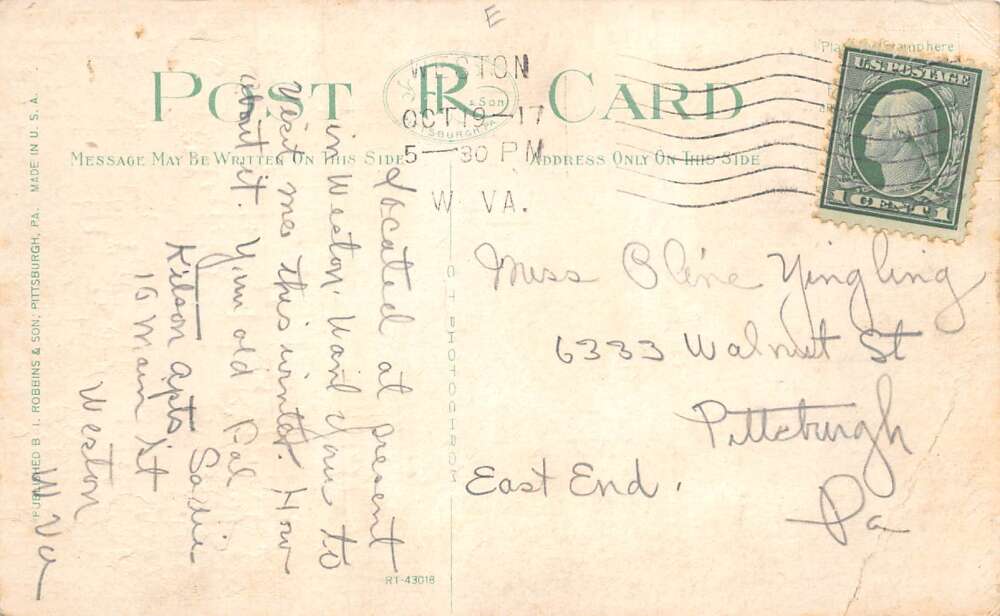 E
Place Stamp here
POST CARD
R & Son
PITTSBURGH, PA.
MESSAGE MAY BE WRITTEN ON THIS SIDE
ADDRESS ONLY ON THIS SIDE
WESTON
OCT 19-17
5-30 PM
W. VA.
U.S. POSTAGE
1 CENT 1
Located at present
in Weston. Want you to
visit me this winter. How
about it. Your old Pal
Sadie
Kitson Apts.
10 Main St
Weston
W Va
Miss Oline Yingling
6333 Walnut St
Pittsburgh
East End.
Pa
PUBLISHED B I. ROBBINS & SON, PITTSBURGH, PA. MADE IN U. S. A.
C T PHOTOCHROM
RT-43018